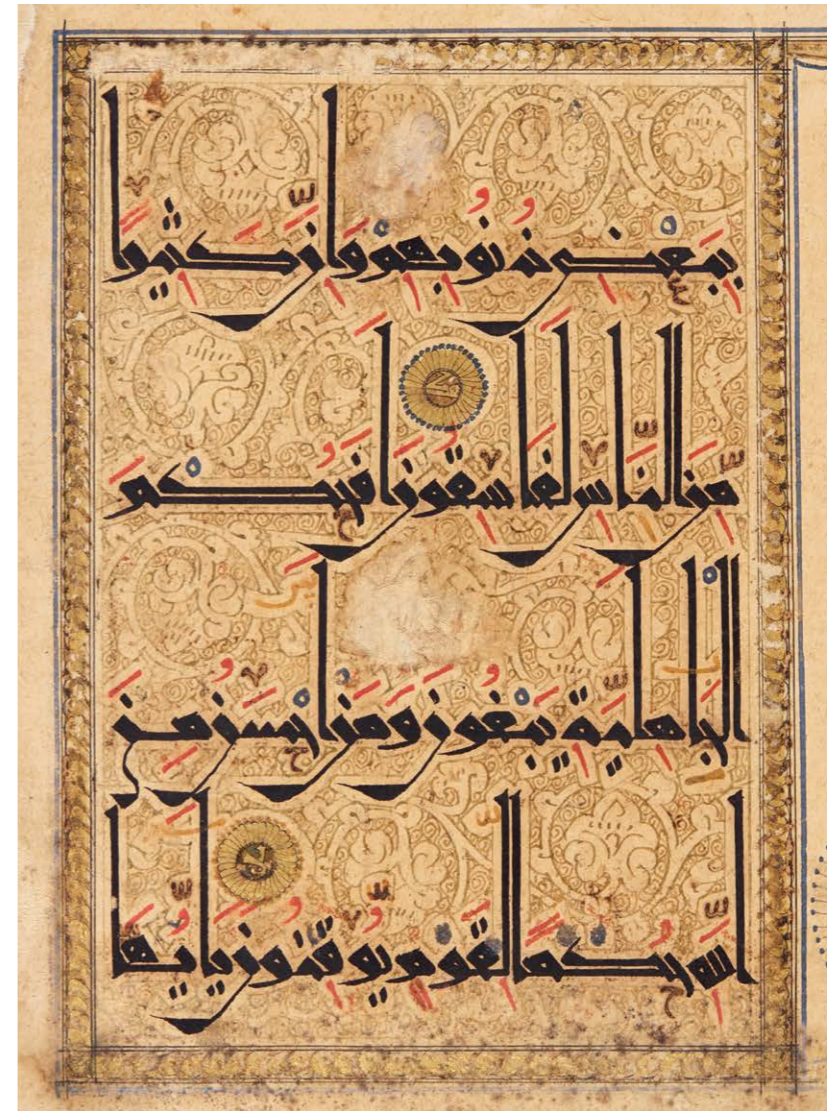 بِبَعْضِ ذُنُوبِهِمْ وَاِنَّ كَثِيرًا
مِنَ النَّاسِ لَفَاسِقُونَ اَفَحُكْمَ
الْجَاهِلِيَّةِ يَبْغُونَ وَمَنْ اَحْسَنُ مِنَ
اللَّهِ حُكْمًا لِقَوْمٍ يُوقِنُونَ يَاَيُّهَا